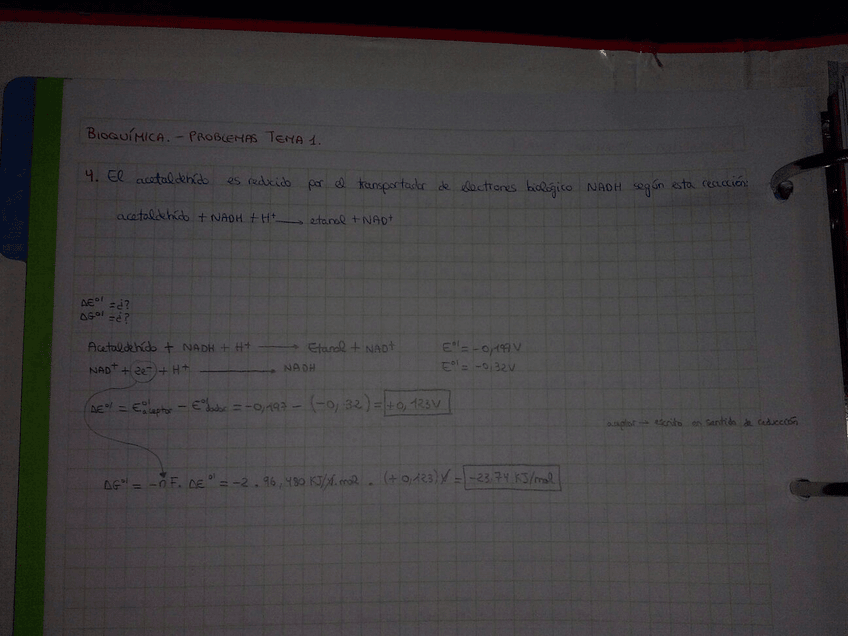 BIOQUÍMICA. - PROBLEMAS TEMA 1.
4. El acetaldehído es reducido por el transportador de electrones biológico NADH según esta reacción:
acetaldehído + NADH + H⁺ → etanol + NAD⁺
ΔE°' = ¿?
ΔG°' = ¿?
Acetaldehído + NADH + H⁺ → Etanol + NAD⁺ E°' = -0,197V
NAD⁺ + 2e⁻ + H⁺ → NADH E°' = -0,32V
ΔE°' = E°'aceptor - E°'dador = -0,197 - (-0,32) = +0,123V
aceptor → escrita en sentido de reducción
ΔG°' = -nF. ΔE°' = -2 . 96,480 KJ/V.mol . (+0,123)V = -23,74 KJ/mol